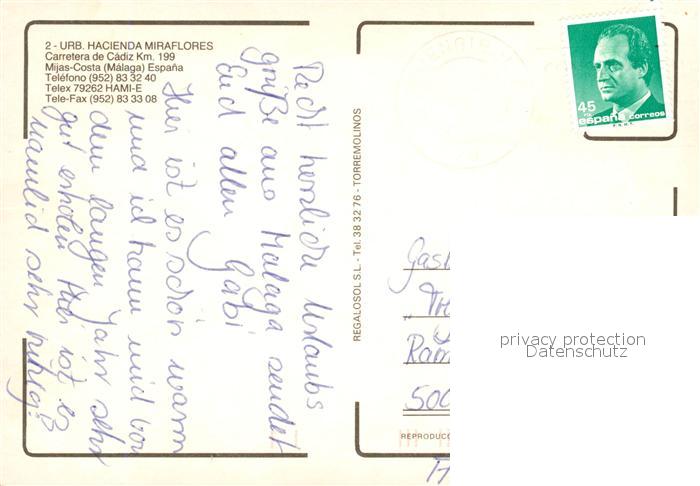 2 - URB. HACIENDA MIRAFLORES
Carretera de Cádiz Km. 199
Mijas-Costa (Málaga) España
Teléfono (952) 83 32 40
Telex 79262 HAMI-E
Tele-Fax (952) 83 33 08
Recht herzliche Urlaubs
grüße aus Malaga sendet
Euch allen Gabi
Hier ist es schön warm
und ich kann mich von
dem langen Jahr sehr
gut erholen. Hier ist es
nämlich sehr ruhig!
REGALOSOL S.L. - Tel. 38 32 76 - TORREMOLINOS
45
PTA
españa correos
Gast
"Tre
Ram
500
REPRODUC
privacy protection
Datenschutz